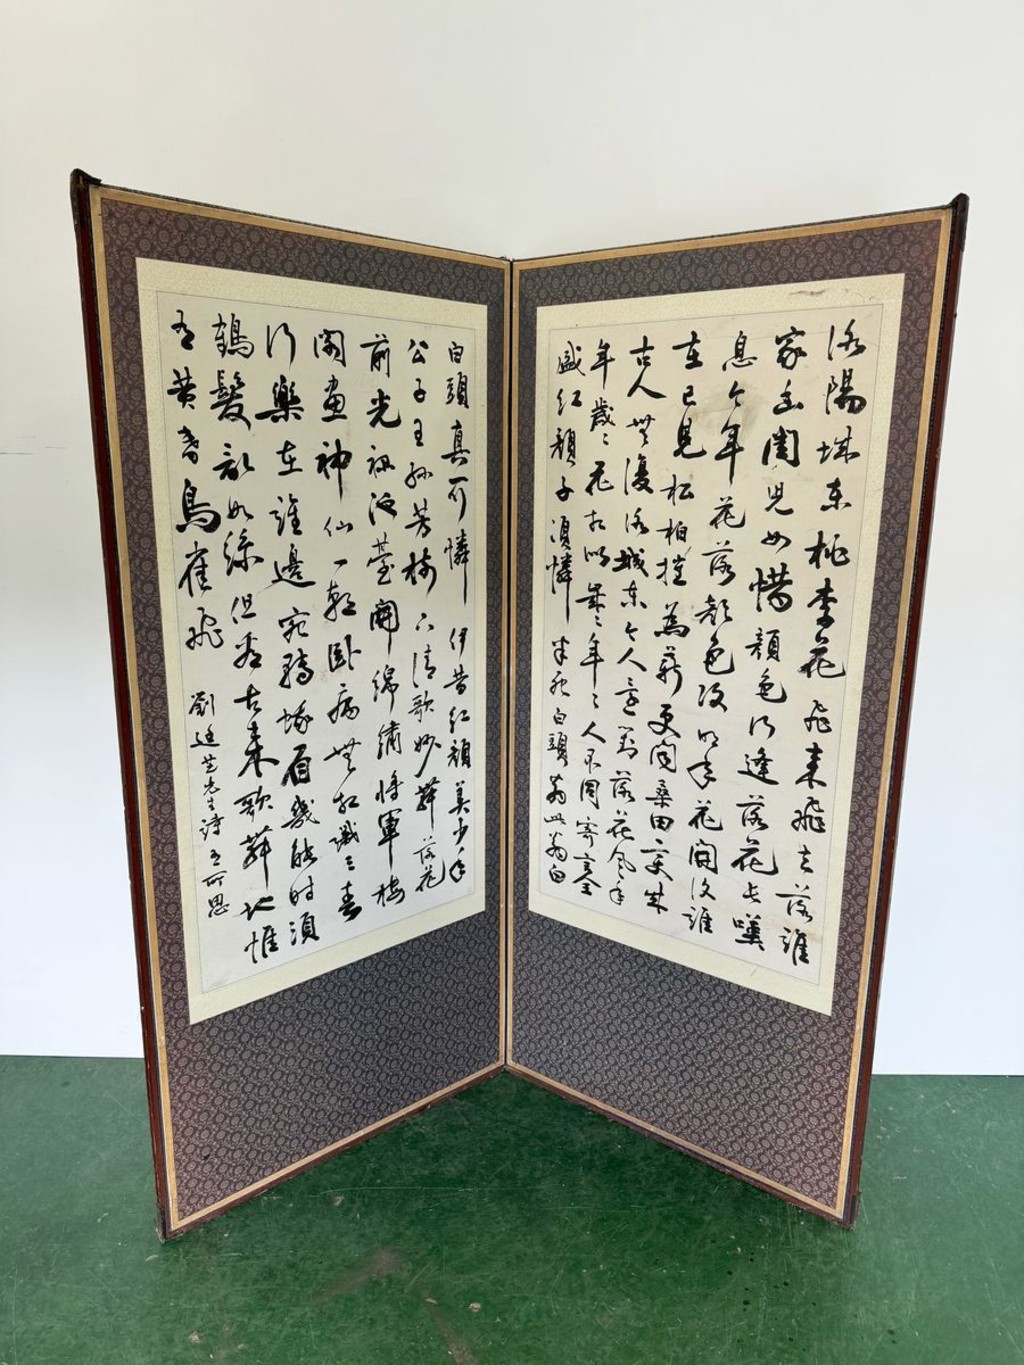 洛陽城東桃李花飛来飛去落誰
家幽閨児女惜顔色行逢落花長嘆
息今年花落顔色改明年花開復誰
在已見松柏摧為薪更聞桑田変成
古人無復洛城東今人還對落花風年
年歳々花相似歳々年々人不同寄言全
盛紅顔子須憐半死白頭翁此翁白
白頭真可憐伊昔紅顔美少年
公子王孫芳樹下清歌妙舞落花
前光禄池臺開錦繡将軍楼
閣畫神仙一朝臥病無相識三春
行樂在誰邊宛轉蛾眉幾能時須
鶴髪亂如絲但看古来歌舞地惟
有黄昏鳥雀飛 劉廷芝先生詩有所思